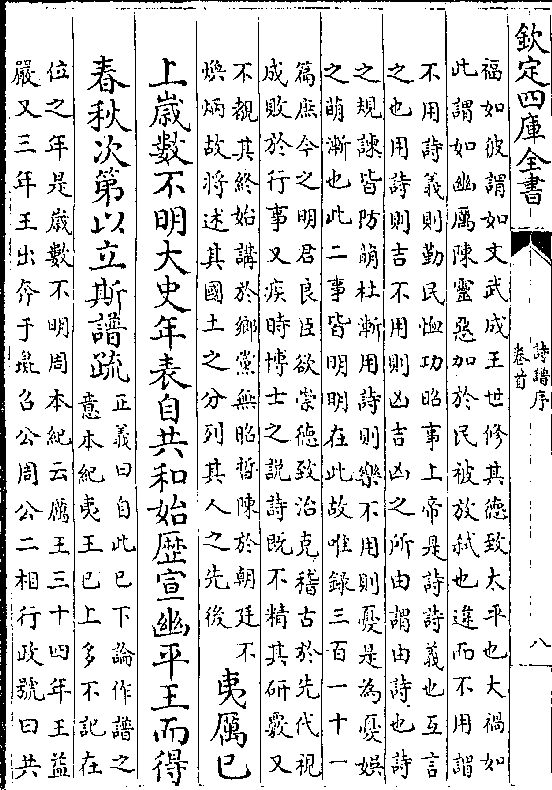 欽定四庫全書
詩譜序
卷首
八
福如彼謂如文武成王世修其德致太平也大禍如
此謂如幽厲陳靈惡加於民被放弒也違而不用謂
不用詩義則勤民恤功昭事上帝是詩詩義也互言
之也用詩則吉不用則凶吉凶之所由謂由詩也詩
之規諫皆防萌杜漸用詩則樂不用則憂是為憂娛
之萌漸也此二事皆明明在此故唯録三百一十一
篇庶今之明君良臣欲崇德致治克稽古於先代視
成敗於行事又疾時博士之説詩既不精其研覈又
不覩其終始講於鄉黨無昭晢陳於朝廷不
煥炳故將述其國土之分列其人之先後
夷厲已
上嵗數不明大史年表自共和始歴宣幽平王而得
春秋次第以立斯譜疏
正義曰自此已下論作譜之
意本紀夷王已上多不記在
位之年是嵗數不明周本紀云厲王三十四年王益
嚴又三年王出奔于彘召公周公二相行政號曰共